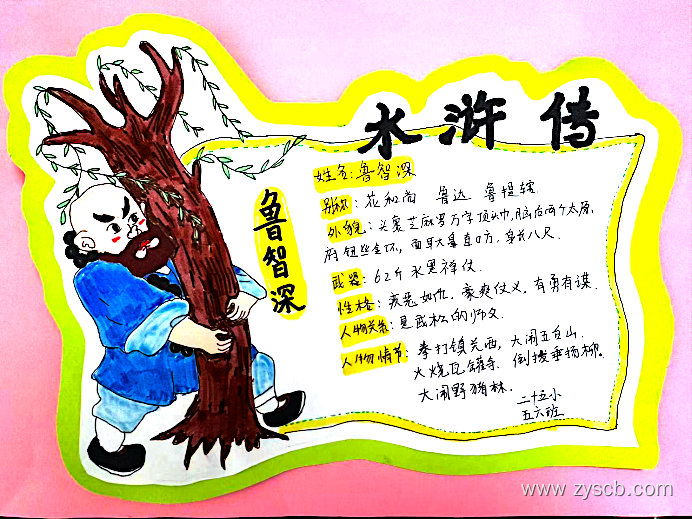 水浒传
鲁智深
姓名:鲁智深
别称:花和尚 鲁达 鲁提辖
外貌:头裹芝麻罗万字顶头巾,脑后两个太原
府钮丝金环,面耳大鼻直口方,身长八尺.
武器:62斤水墨禅仗.
性格:疾恶如仇,豪爽仗义,有勇有谋.
人物关系:是武松的师父.
人物情节:拳打镇关西,大闹五台山.
火烧瓦罐寺.倒拔垂杨柳.
大闹野猪林.
二十五小
五六班
www.zyscb.com